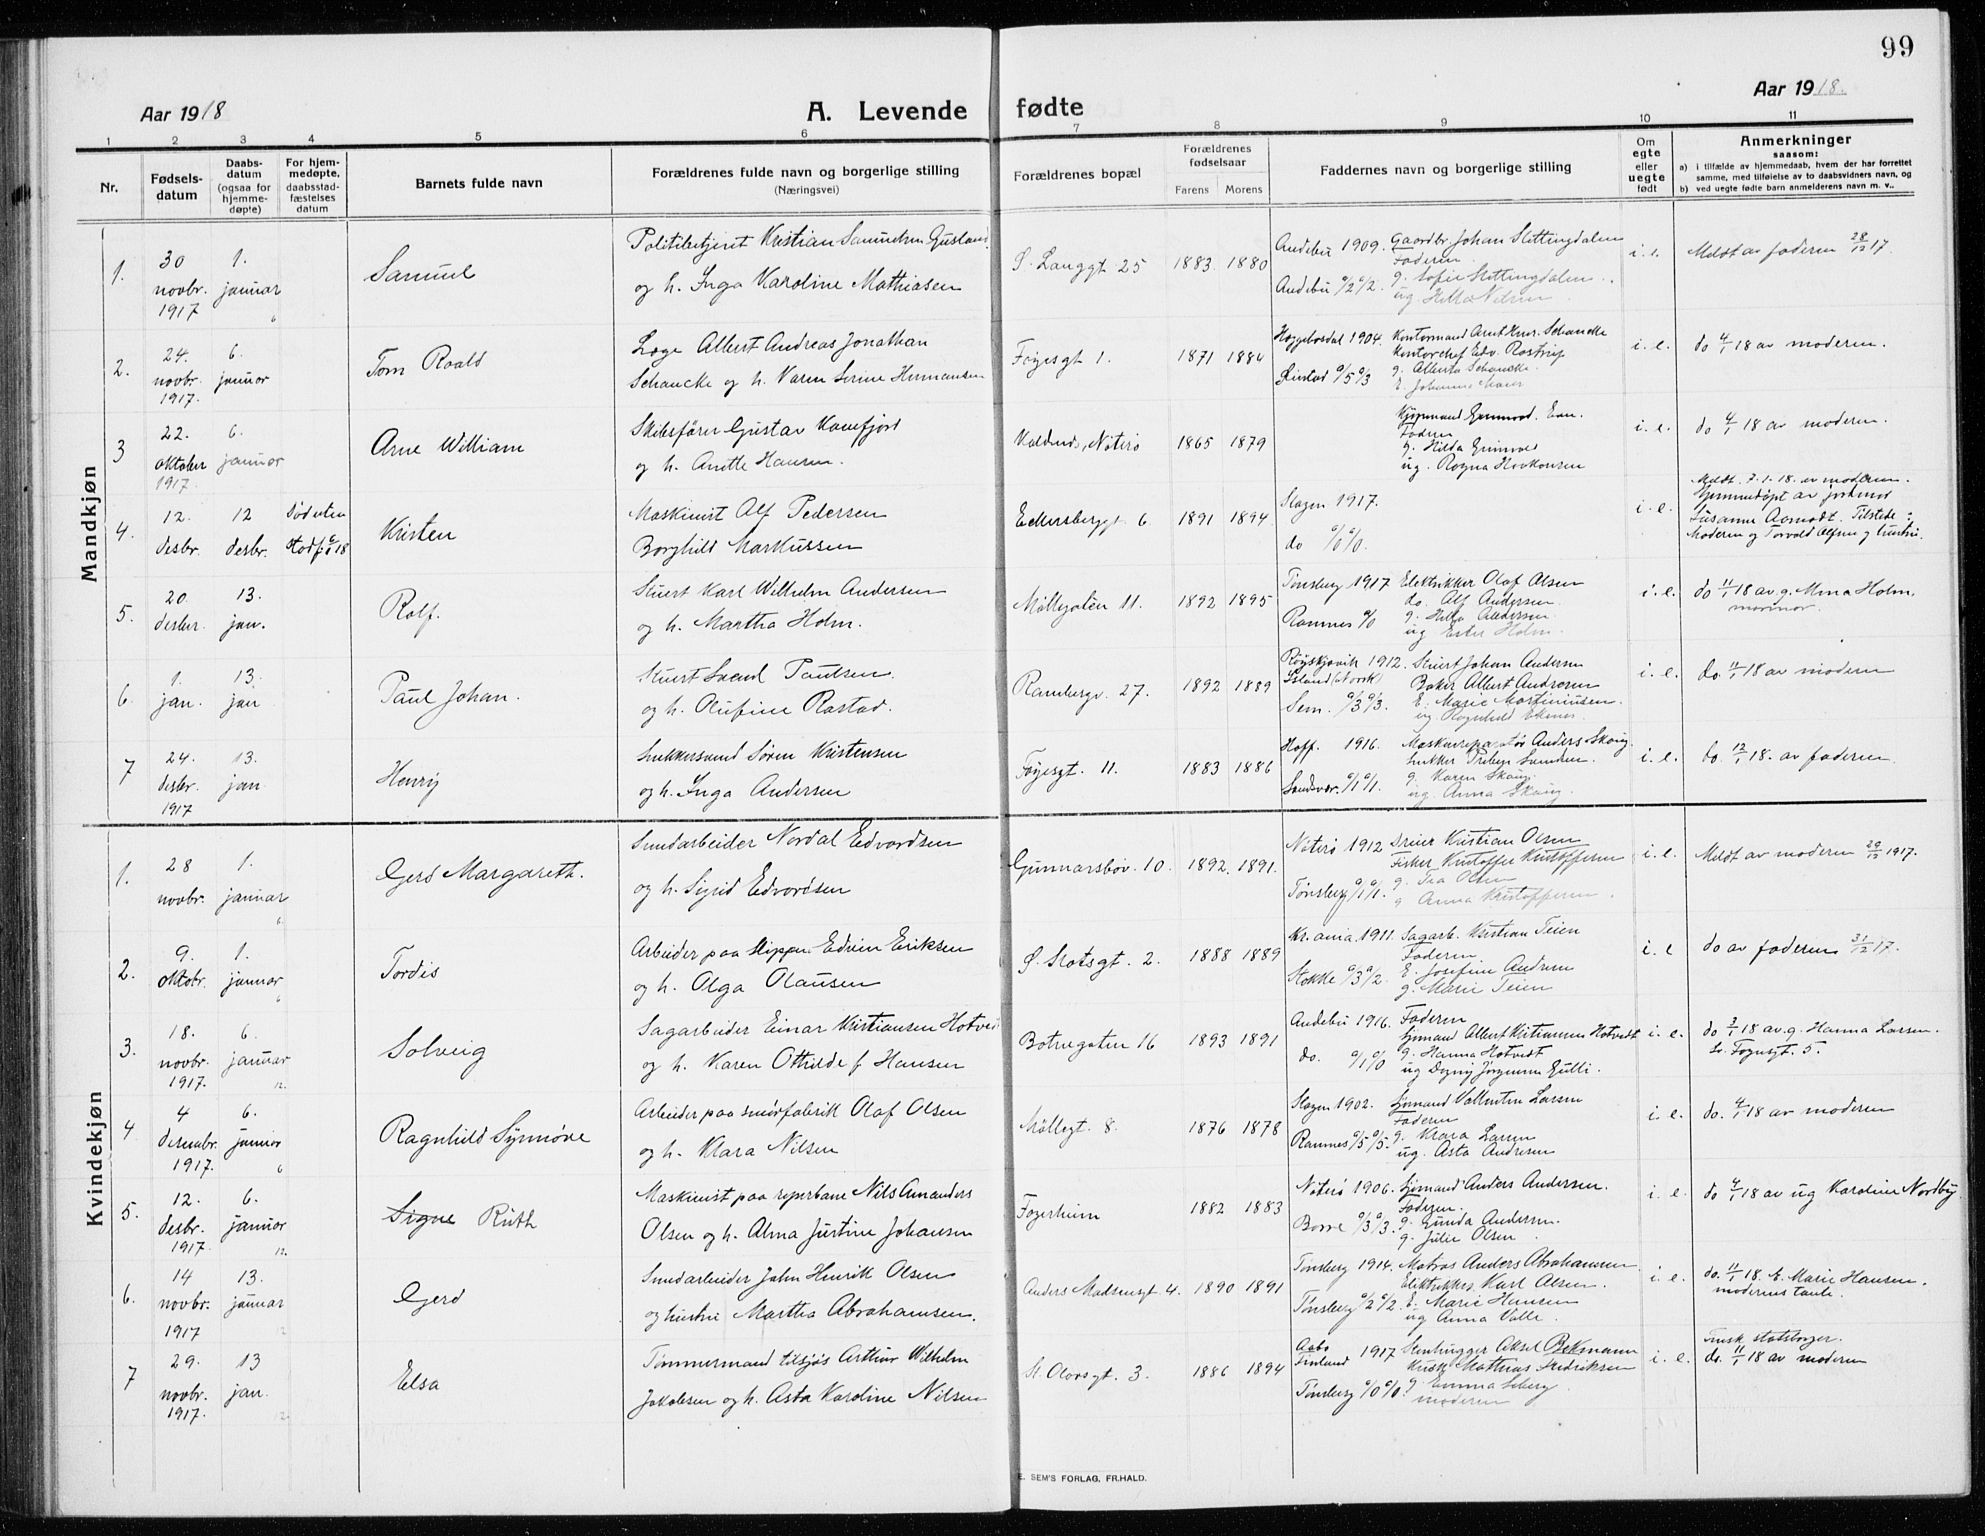 99
Aar 1918
A. Levende fødte
Aar 1918.
1 2 3 4 5 6 7 8 9 10 11
Nr.
Fødsels-
datum
Daabs-
datum
(ogsaa for
hjemme-
døpte)
For hjem-
medøpte,
daabsstad-
fæstelses
datum
Barnets fulde navn
Forældrenes fulde navn og borgerlige stilling
(Næringsvei)
Forældrenes bopæl
Forældrenes
fødselsaar
Farens Morens
Faddernes navn og borgerlige stilling
Om
egte
eller
uegte
født
Anmerkninger
saasom:
a) i tilfælde av hjemmedaab, hvem der har forrettet
samme, med tilføielse av to daabsvidners navn, og
b) ved uegte fødte barn anmelderens navn m. v..
Mandkjøn
1. 30 novbr. 1917 1. januar
Samuel
Politibetjent Kristian Samuelsen
og h. Inga Karoline Mathiasen
S. Langgt. 25 1883. 1880
Andebu 1909. Gaardbr. Johan Slettingdalen
Faderen
Andebu 0/2 0/2. g. Sofie Slettingdalen
ug. Hilda Nilsen
i. e.
Meldt av faderen 28/12 17.
2. 24. novbr. 1917. 6. januar
Tom Roald
Læge Albert Andreas Jonathan
Schancke og h. Karen Serine Hermansen
Føyesgt 1. 1871 1884
1904. Kontormand Arnt Schancke
Kontorchef Edv. Rostrup
0/5 0/3 g. Alberta Schancke
i. e.
do 4/1 18 av moderen.
3 22. oktober 1917. 6. januar
Arne William
Skibsfører Gustav
og h. Anette Hansen.
Nøterø 1865 1879
Kjøpmand
Faderen
g. Hilda Grimsvd
ug. Ragna Haakonsen
i. e.
do 4/1 18 av moderen.
4. 12. desbr. 12 desbr. Død uten Stadf. 18
Kristen
Maskinist Alf Pedersen
Borghild Markussen
Edlersbergt 6 1891 1894
Slagen 1917.
do 0/0 0/0.
i. e.
Meldt. 7-1-18. av moderen.
Hjemmedøpt av jordmor
Susanne Aamodt. Tilstede:
Moderen og Torvald Olsen og hustru.
5. 20 desbr. 13. jan.
Rolf.
Stuert Karl Wilhelm Andersen
og h. Martha Holm.
Møllegaten 11. 1892 1895
Tønsberg 1917 Elektrikker Olaf Olsen
do. Alf Andersen
Ramnes 0/0 g. Hilda Andersen
ug Ester Holm.
i. e.
do 11/1 18 av g. Mina Holm,
mormor
6. 1. jan. 13. jan
Paul Johan.
Stuert Svend Paulsen.
og h. Olufine Rastad.
Rambergv. 27. 1892 1889
1912. Stuert Johan Andersen
Island Baker Albert Andresen
Sem. 0/3 0/3. E. Marie Martiniusen
ug. Ragnhild
i. e.
do. 11/1 18 av moderen
7 24. desbr. 1917 13. jan
Henry
Snekkersvend Søren Kristensen
og h. Inga Andersen
Føyesgt. 11. 1883 1886
Hoff. 1916. Maskinreparatør Anders Skaug.
Snekker
Sandsvær. 0/1 0/1. g. Karen Skaug.
ug. Anna Skaug.
i. e.
do. 12/1 18. av faderen.
Kvindekjøn
1. 28 novbr. 1. januar
Gerd Margareth.
Smedarbeider Nordal Edvardsen
og h. Sigrid Edvardsen
Gunnarsbøv. 10. 1892. 1891.
Nøterø 1912 Dreier Kristian Olsen
Fisker Kristoffer Kristoffersen
g. Tea Olsen
Tønsberg 0/1 0/1. g Anna Kristoffersen.
i. e.
Meldt av moderen 29/12 1917.
2. 9. oktobr. 1. januar
Tordis
Arbeider paa slippen Edvin Eriksen
og h. Olga Olausen
S. Slotsgt. 2. 1888 1889
Kr.ania. 1911. Sagarb. Kristian Teien
Faderen
Stokke 0/3 0/2. E. Josefine Andresen
g. Marie Teien
i. e
do av faderen 31/12 17.
3. 18. novbr. 1917. 6. januar
Solveig
Sagarbeider Einar Kristiansen Hotvedt
og h. Karen Othilde f Hansen
Botnegaten 16 1893 1891
Andebu 1916. Faderen
Sjømand Albert Kristiansen Hotvedt
do. 0/1 0/0 g. Hanna Hotvedt
ug Dagny Jørgensen Gulli.
i. e.
do 3/1 18 av g. Hanna Larsen.
Føynsgt. 5.
4 4 desembr. 1917. 6. januar
Ragnhild Synnøve
Arbeider paa smørfabrik Olaf Olsen
og h. Klara Nilsen
Møllegt. 8. 1876 1878
Slagen 1902. Sjømand Vallentin Larsen
Faderen
Ramnes 0/5 0/5. g. Klara Larsen
ug. Asta Andresen
i. e.
do. 4/1 18 av moderen
5. 12. desbr. 1917. 6. januar
Signe Ruth
Maskinist paa reperbane Nils Amandus
Olsen og h. Alma Justine Johansen
Fagerheim 1882 1883
Nøterø 1906. Sjømand Anders Andersen.
Faderen.
Borre 0/3 0/3. g. Gunda Andersen.
g. Julie Olsen
i. e.
do 4/1 18 av ug Karoline Nordby
6. 14 novbr. 1917 13. januar
Gerd
Smedarbeider John Henrik Olsen
og hustru Martha Abrahamsen.
Anders Madsensgt 4. 1890 1891
Tønsberg 1914. Matros Anders Abrahamsen
Elektrikker Karl Olsen.
Tønsberg 0/2 0/2. E. Marie Hansen
ug Anna Valle.
i. e.
do. 11/1 18. E. Marie Hansen.
moderens tante.
7 29. novbr. 1917. 13 jan.
Elsa
Tømmermand tilsjøs Arthur Wilhelm
Jakobsen og h. Asta Karoline Nilsen
St. Olavsgt. 3. 1886 1894
Aabo Finland 1917 Stenhugger Aksel Bekmann
Mathias Fredriksen
Tønsberg 0/0 0/0. g. Emma Seberg
moderen
i. e.
Finsk statsborger.
do. 11/1 18 av moderen
E. SEM'S FORLAG, FR.HALD.